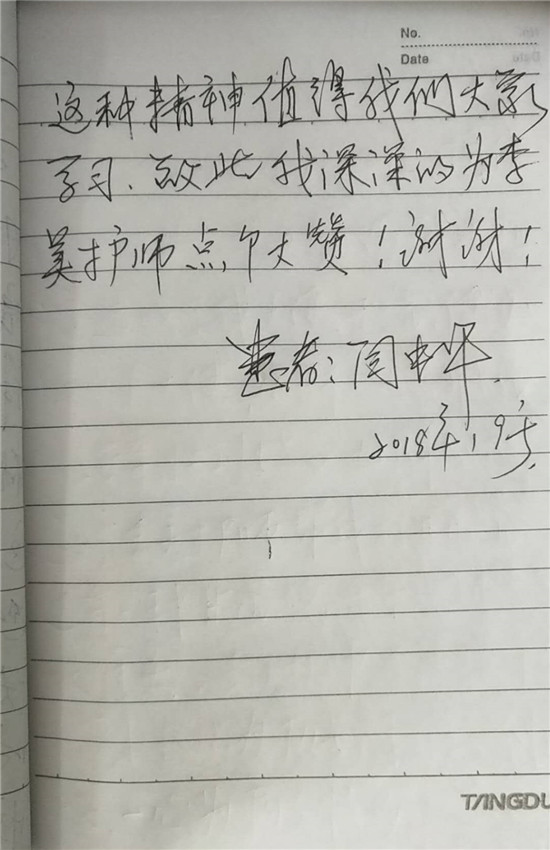 No.
Date
这种精神值得我们大家
学习、故此我深深的为李
昊护师点个大赞！谢谢！
患者：闫中华
2018年, 9号
TANGDU